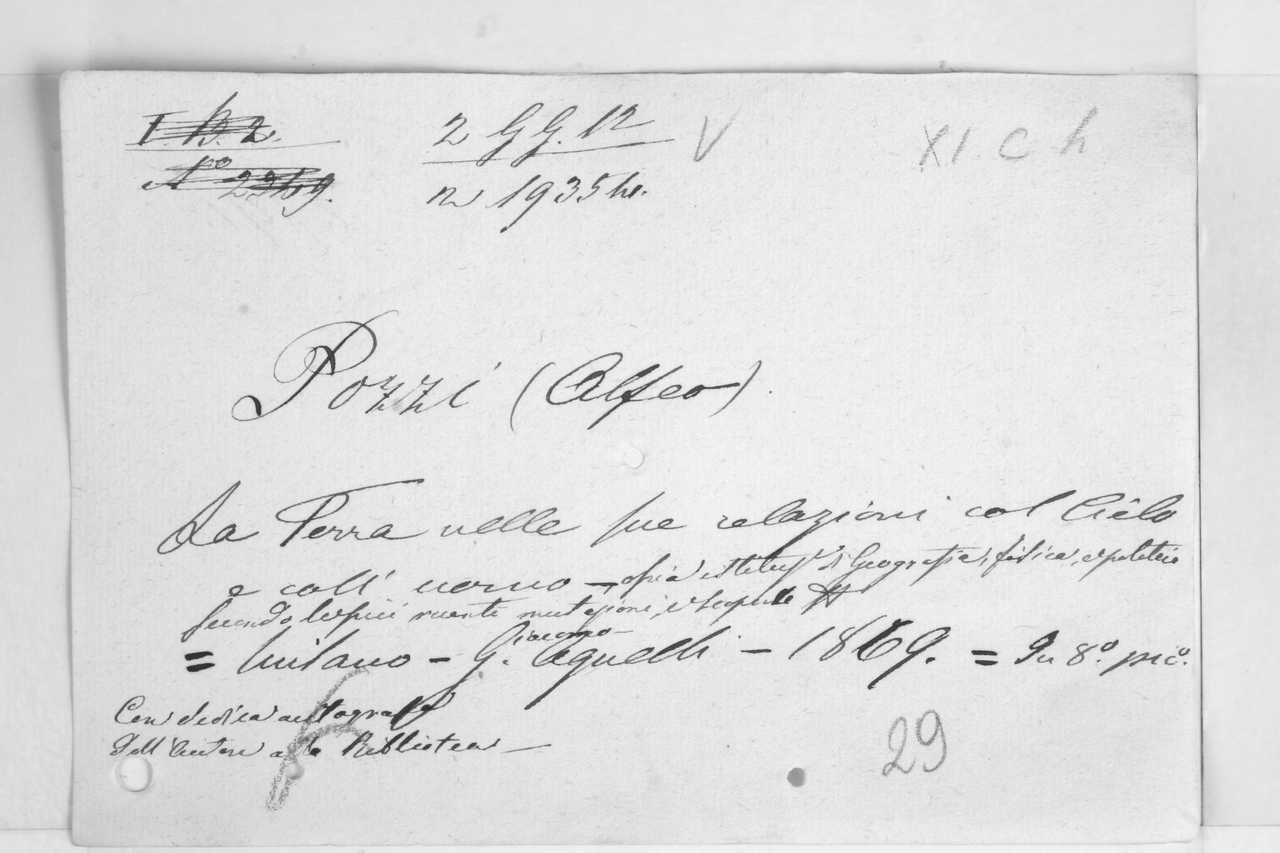 I. B. 2. 2 G G. 12 V XI. C h
N.º 2369. n 1935 bis.
Pozzi (Alfeo).
La Terra nelle sue relazioni col Cielo
e coll' uomo — ossia istituz.i di Geografia, fisica, e politica
secondo le più recenti mutazioni, e scoperte
= Milano – G. Giacomo Agnelli – 1869. = In 8.º picº.
Con dedica autografa
dell'Autore alla Biblioteca —
29